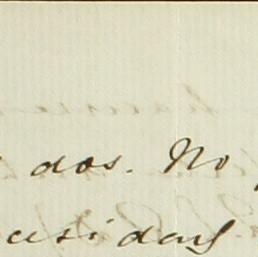 dos. No
cesidad